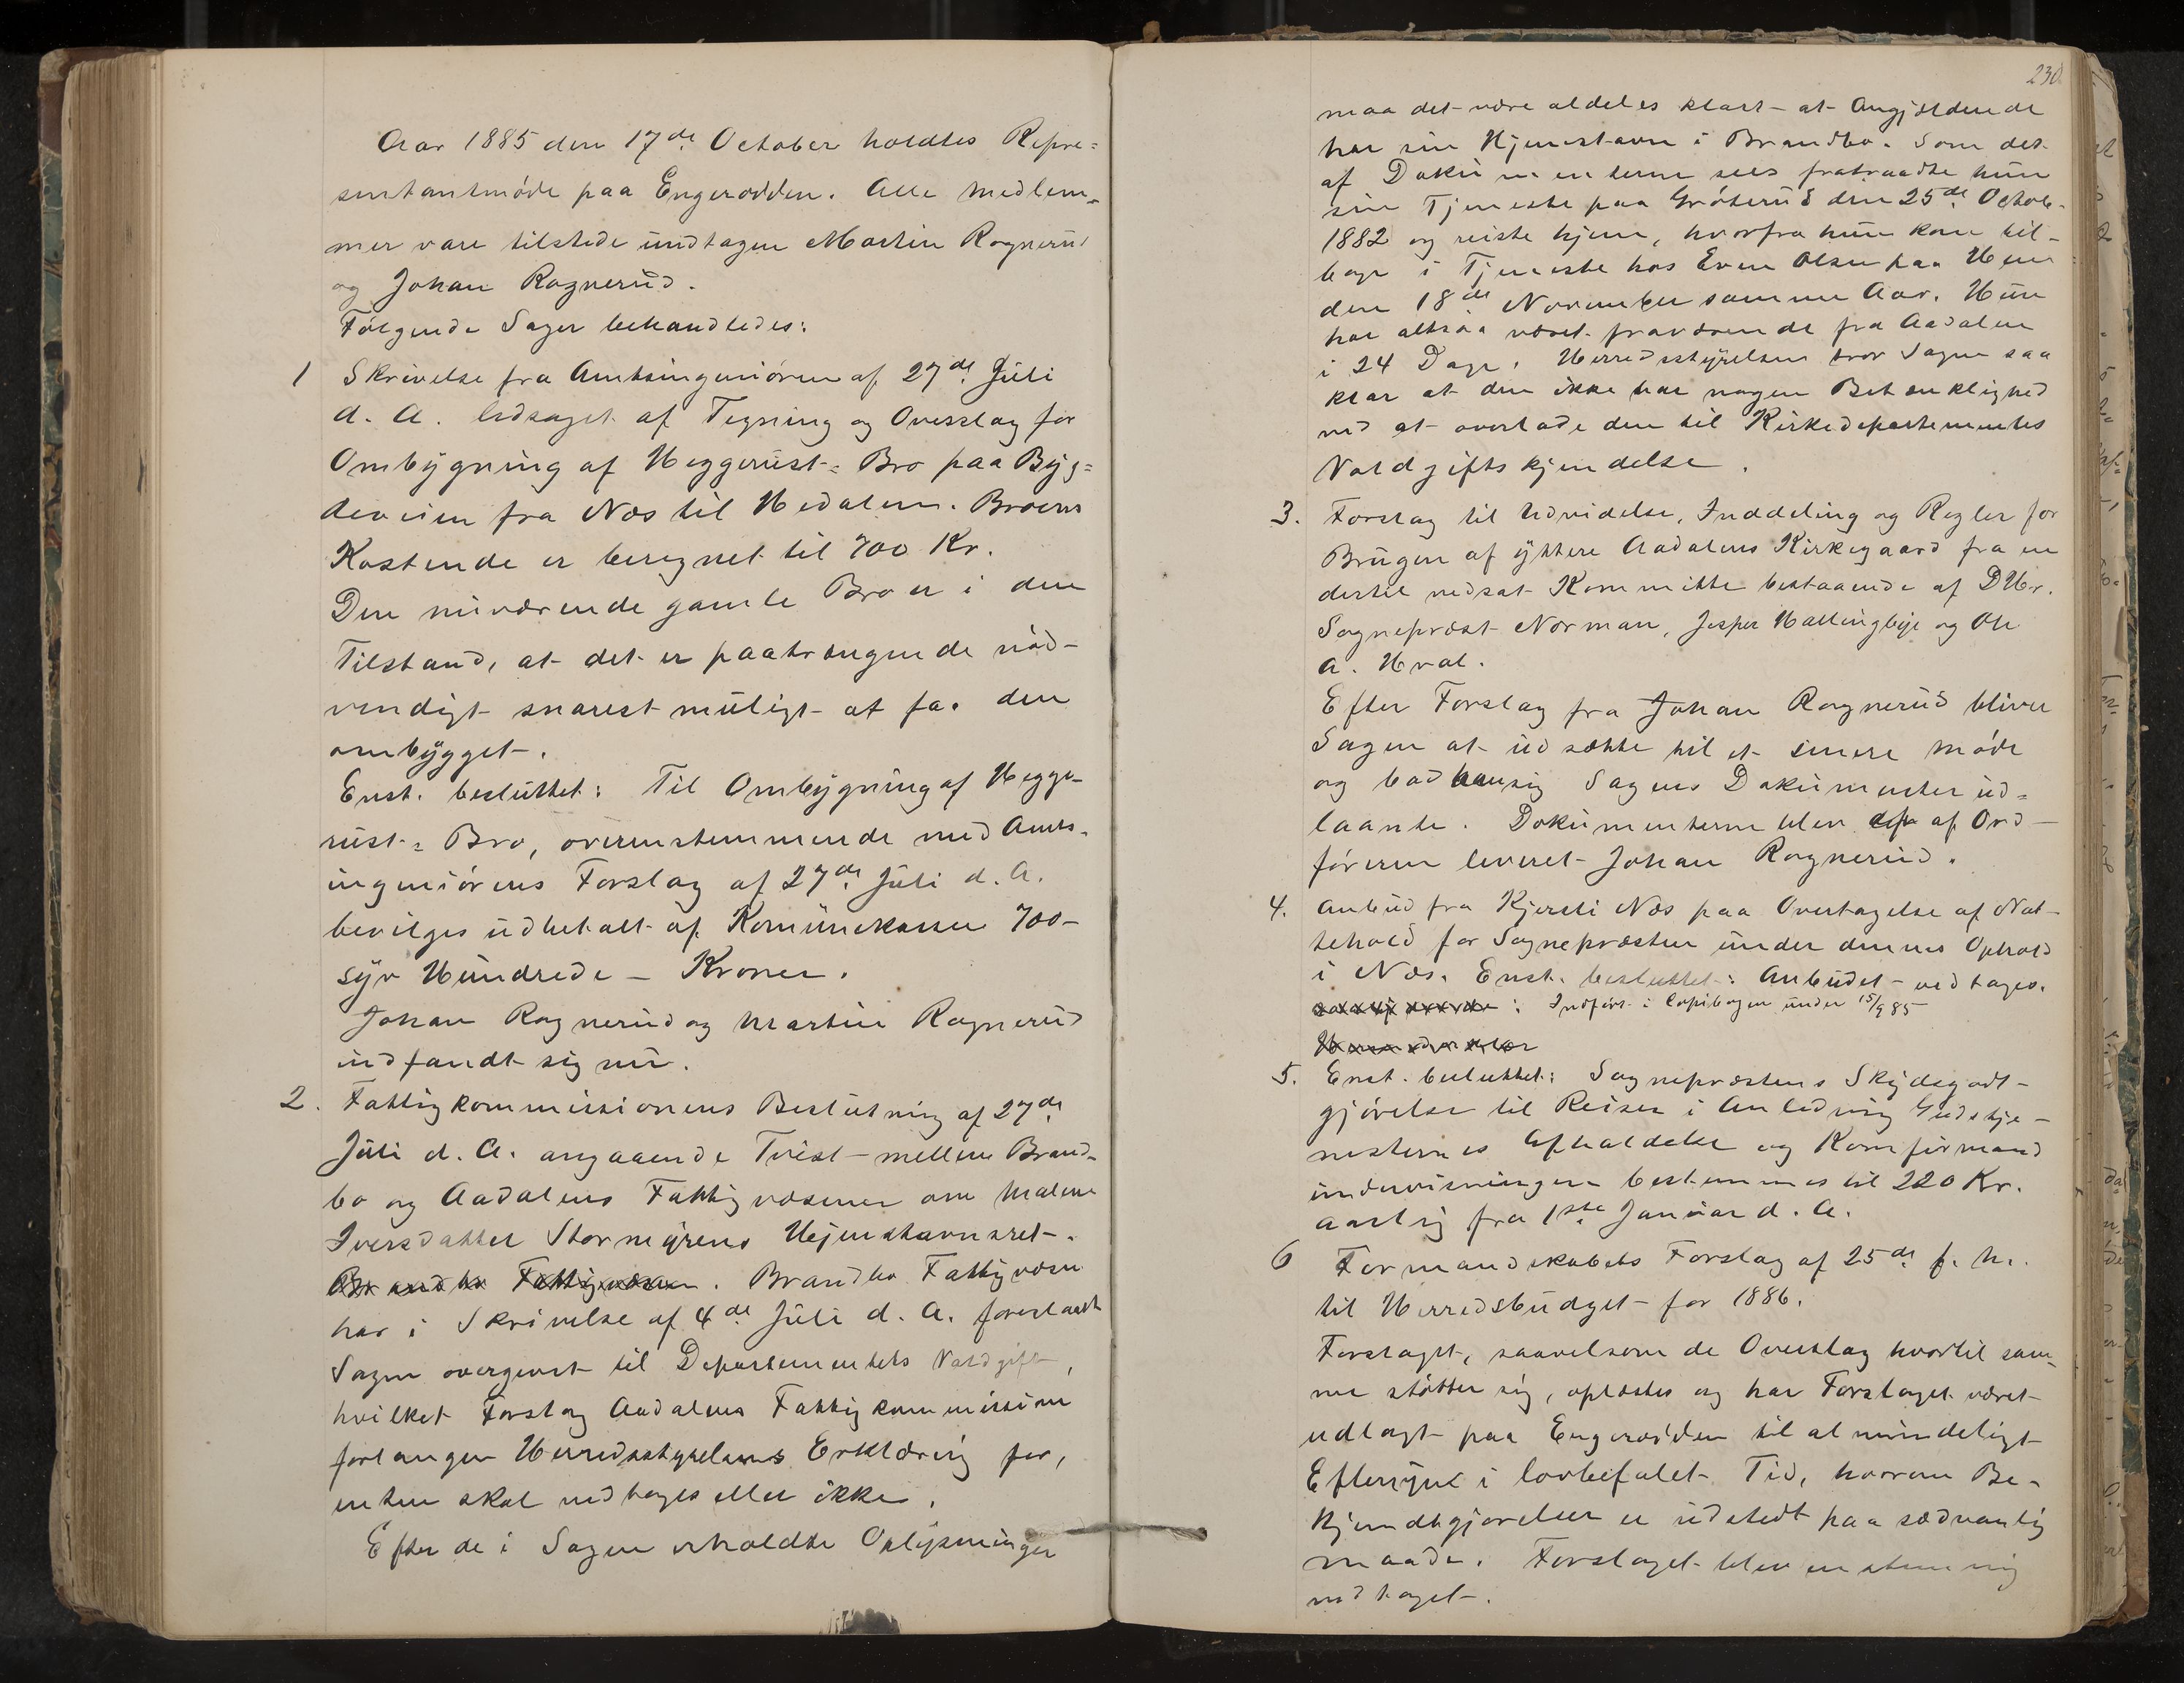 Aar 1885 den 17de October holdtes Repre=
sentantmøde paa Engerodden. Alle Medlem=
mer vare tilstede undtagen Martin Rognerud
og Johan Rognerud.
Følgende Sager behandledes:
1 Skrivelse fra Amtsingeniøren af 27de Juli
d. A. ledsaget af Tegning og Overslag for
Ombygning af Heggerust= Bro paa Byg=
deveien fra Næs til Hedalen. Broens
Kostende er beregnet til 700 Kr.
Den nuværende gamle Bro er i den
Tilstand, at det er paatrængende nød-
vendigt snarest muligt at faa den
ombygget.
Enst. besluttet: Til Ombygning af Hegge-
rust= Bro, overenstemmende med Amts-
ingeniørens Forslag af 27de Juli d. A.
bevilges udbetalt af Komunekassen 700-
syv Hundrede - Kroner.
Johan Rognerud og Martin Rognerud
indfandt sig nu.
2. Fattigkommissionens Beslutning af 27de
Juli d. A. angaaende Tvist mellem Brand-
bo og Aadalens Fattigvæsener om Malene
Iversdatter Stormyrens Hjemstavnsret.
Brandbo Fattigvæsen. Brandbo Fattigvæsen
har i Skrivelse af 4de Juli d. A. foreslaaet
Sagen overgivet til Departementets Voldgift,
hvilket Forslag Aadalens Fattigkommission
forlanger Herredsstyrelsens Erklæring for,
enten skal vedtages eller ikke.
Efter de i Sagen erholdte Oplysninger
230
maa det være aldeles klart at Angjældende
har sin Hjemstavn i Brandbo. Som det
af Dokumenterne sees fratraadte hun
sin Tjeneste paa Grøterud den 25de Octob-
1882 og reiste hjem, hvorfra hun kom til-
bage i Tjeneste hos Even Olsen paa Hem
den 18de November samme Aar. Hun
har altsaa været fraværende fra Aadalen
i 24 Dage. Herredsstyrelsen tror Sagen saa
klar at den ikke har nogen Betænklighed
ved at overlade den til Kirkedepartementets
Voldgiftskjendelse.
3. Forslag til Udvidelse, Inddeling og Regler for
Brugen af ytere Aadalens Kirkegaard fra en
dertil nedsat Kommitte bestaaende af DHr.
Sogneprest Norman, Jesper Hallingbye og Ole
A. Hval.
Efter Forslag fra Johan Rognerud bliver
Sagen at udsætte til et senere møde
og bad han sig Sagens Dokumenter ud=
laante. Dokumenterne blev af Ord-
føreren leveret Johan Rognerud.
4. Anbud fra Kjersti Næs paa Overtagelse af Nat-
tehold for Sognepræsten under dennes Ophold
i Næs. Enst. besluttet: Anbudet vedtages.
: Indført i Copibogen under 15/9 85
5. Enst. besluttet: Sognepræstens Skydsgodt-
gjørelse til Reiser i Anledning Gudstje-
nesternes Afholdelse og Konfirmand
undervisningen bestemmes til 220 Kr.
aarlig fra 1ste Januar d. A.
6 Formandskabets Forslag af 25de f. M.
til Herredsbudget for 1886.
Forslaget, saavelsom de Overslag hvortil sam-
me støtter sig, oplæstes og har Forslaget været
udlagt paa Engerodden til almindeligt
Eftersyn i lovbefalet Tid, hvorom Be-
kjendtgjørelser er udstedt paa sædvanlig
Maade. Forslaget blev enstemmig
vedtaget.